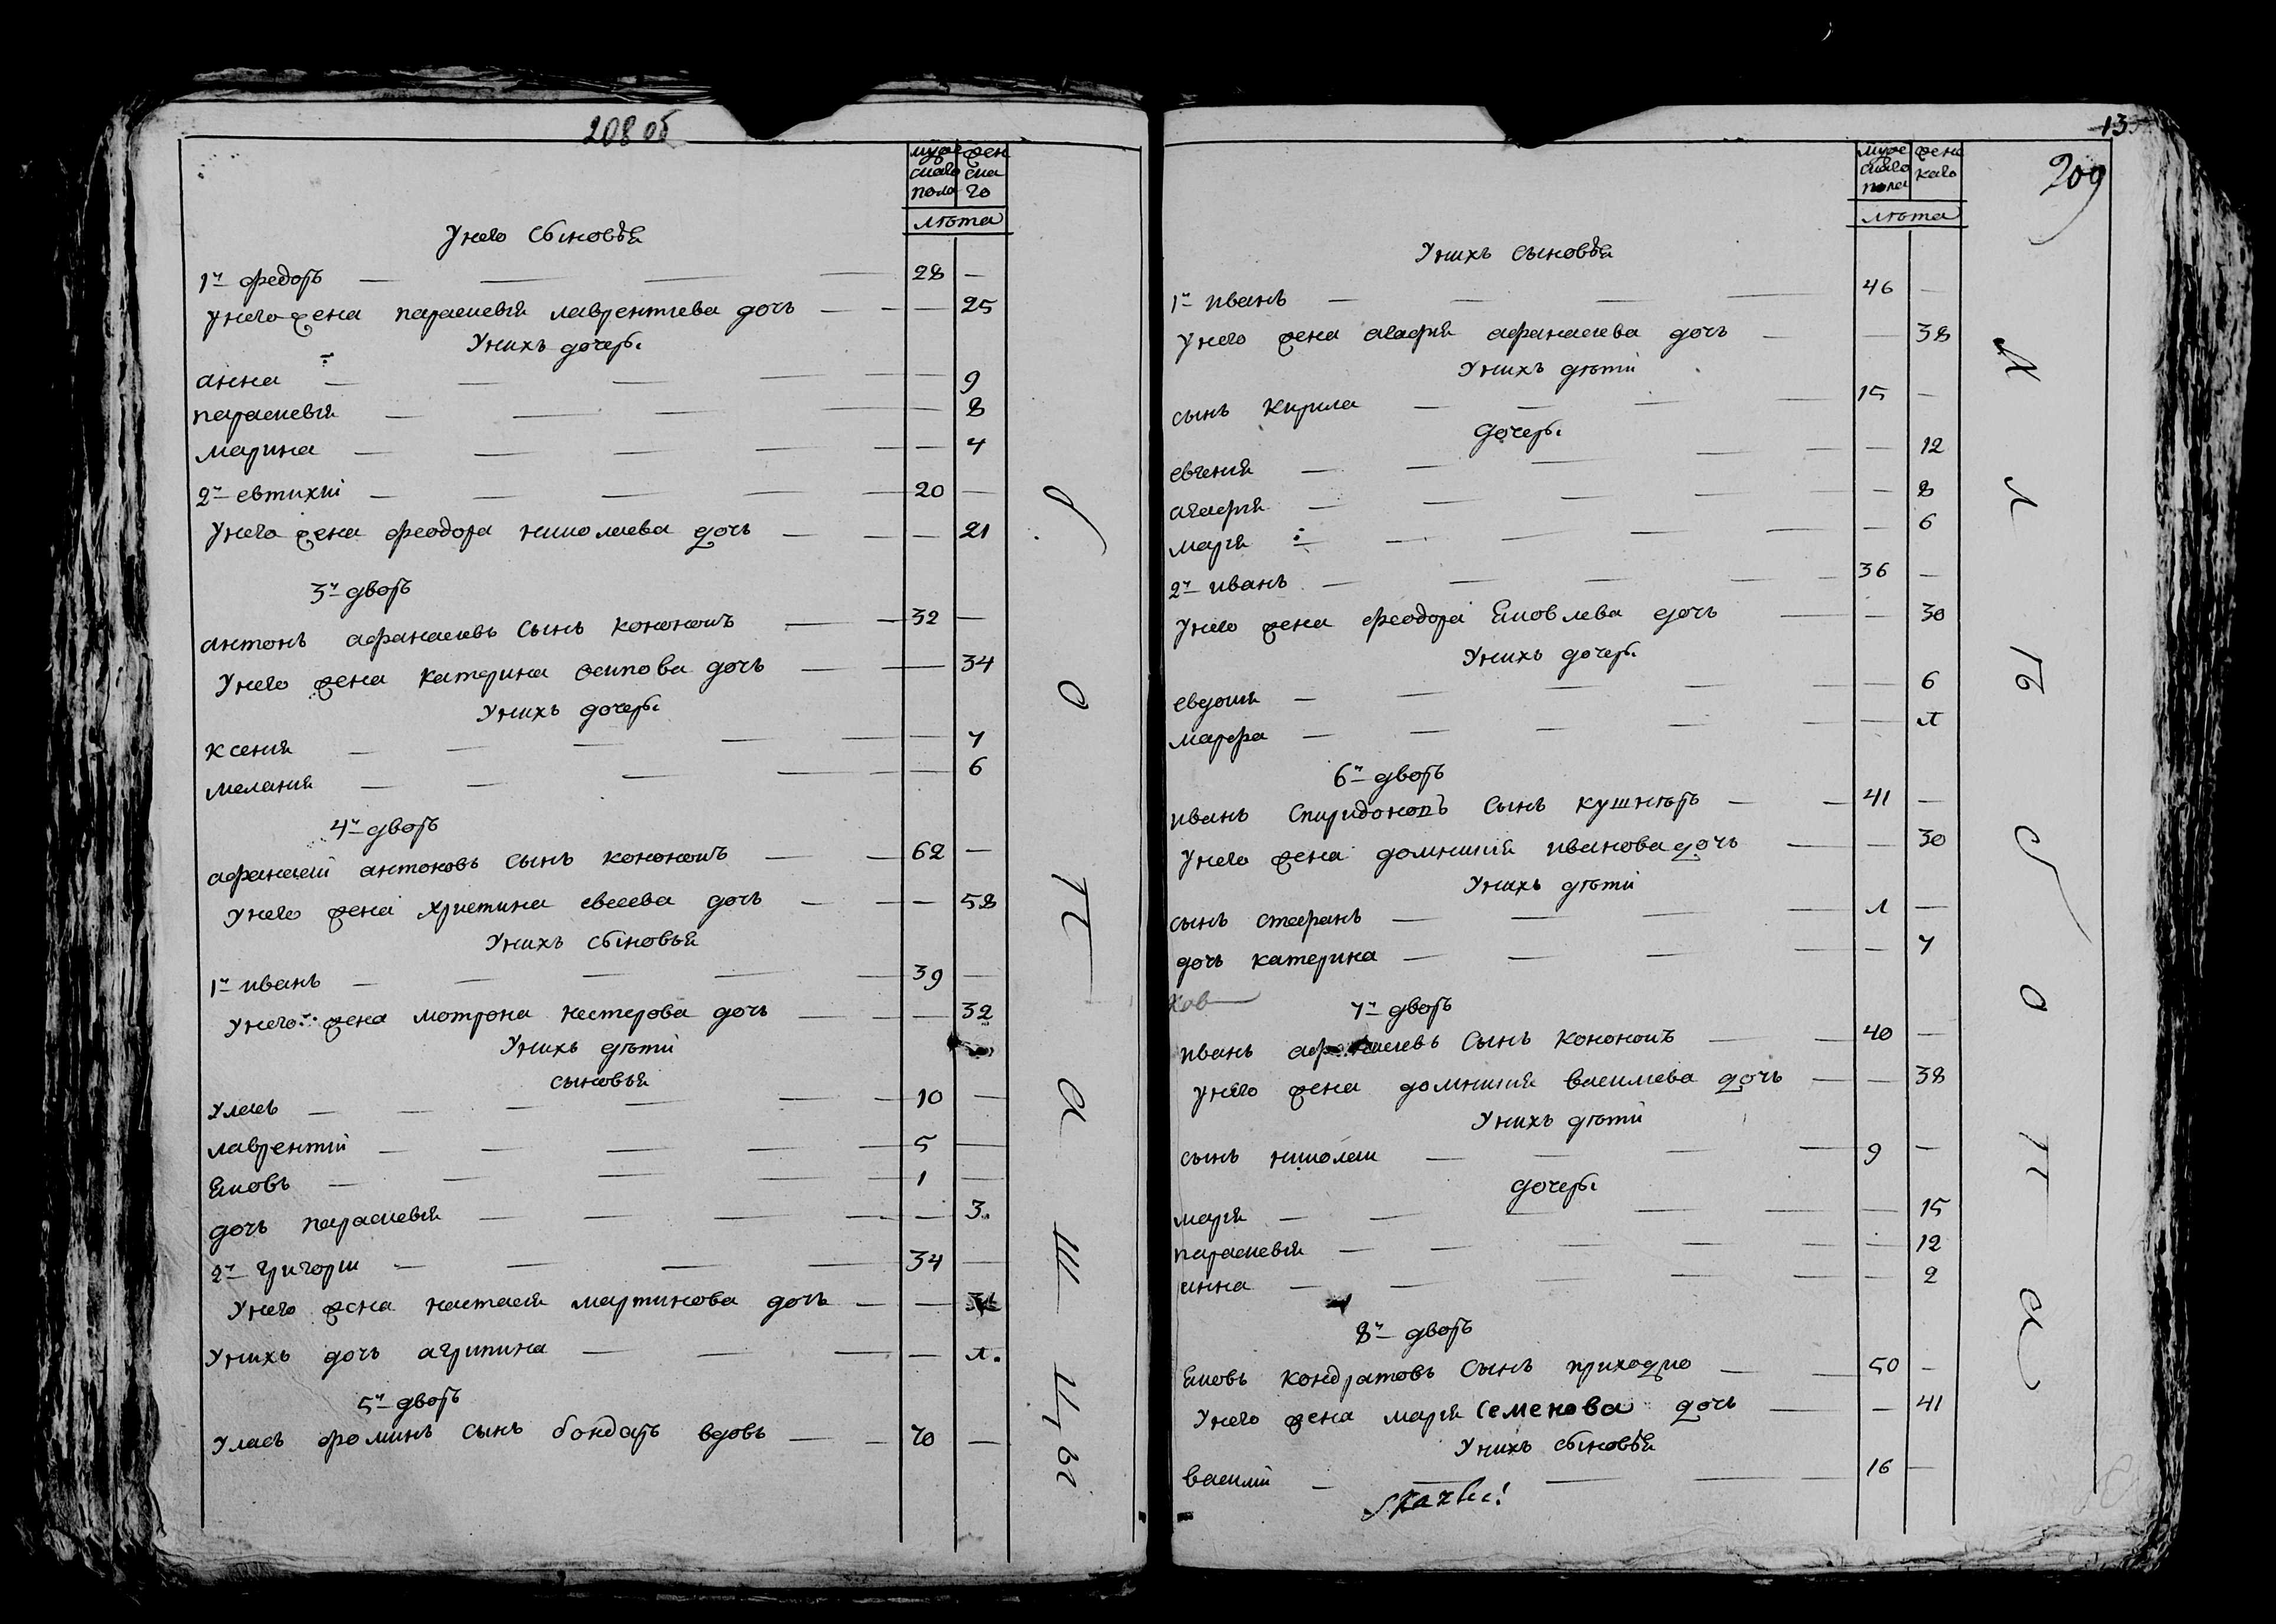 208 об
мужескаго пола
женскаго
лѣта
У него сыновья
1й федоръ — 28 —
У него жена параскевія лаврентиева дочь — — 25
У нихъ дочеры
анна — — 9
параскевія — — 8
марина — — 4
2й евтихий — 20 —
У него жена феодора николаева дочь — — 21
3й дворъ
антонъ афанасиевъ сынъ кононошъ — 32 —
У него жена катерина осипова дочь — — 34
У нихъ дочеры
ксенія — — 7
меланія — — 6
4й дворъ
афанасий антоновъ сынъ кононошъ — 62 —
У него жена христина евсеева дочь — — 58
У нихъ сыновья
1й иванъ — 39 —
У него жена мотрона нестерова дочь — — 32
У нихъ дѣти
сыновья
Уласъ — 10 —
лаврентий — 5 —
Яковъ — 1 —
дочь параскевія — — 3
2й григории — 34 —
У него жена настасія мартинова дочь —
У нихъ дочь агрипина — — л.
5й дворъ
Уласъ фоминъ сынъ бондаръ вдовъ — 70 —
о п а ш ц ы
13
209
мужескаго пола
женскаго
лѣта
У нихъ сыновья
1й иванъ — 46 —
У него жена агафія афанасиева дочь — — 38
У нихъ дѣти
сынъ Кирила — 15 —
дочеры
евгенія — — 12
агафія — — 8
марія — — 6
2й иванъ — 36 —
У него жена феодора Яковлева дочь — — 30
У нихъ дочеры
евдокія — — 6
марфа — — л
6й дворъ
иванъ Спиридоновъ сынъ кушнѣръ — 41 —
У него жена домникія иванова дочь — — 30
У нихъ дѣти
сынъ стефанъ — л —
дочь катерина — — 7
7й дворъ
иванъ афанасиевъ сынъ Кононошъ — 40 —
У него жена домникія василиева дочь — — 38
У нихъ дѣти
сынъ николаи — 9 —
дочеры
марія — — 15
параскевія — — 12
анна — — 2
8й дворъ
Яковъ Кондратовъ сынъ приходко — 50 —
У него жена марія Семенова дочь — — 41
У нихъ сыновья
василий — 16 —
о п а